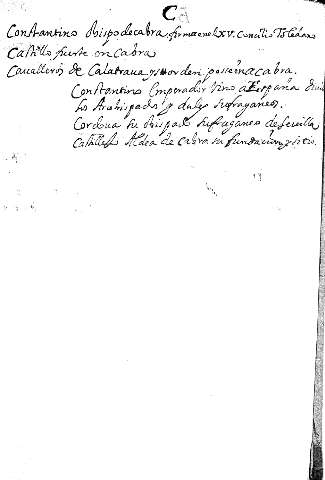 C
Constantino obispo de cabra, firma en el XV. Concilio Toledano
Castillo fuerte en Cabra
Cavalleros de Calatraua y su orden posseina cabra.
Constantino Emperador vino a España
los Arobispados y dioles sufraganeos.
Cordoua su obispado sufraganeo de seuilla
Castillejo Aldea de Cabra su fundacion y sitio.